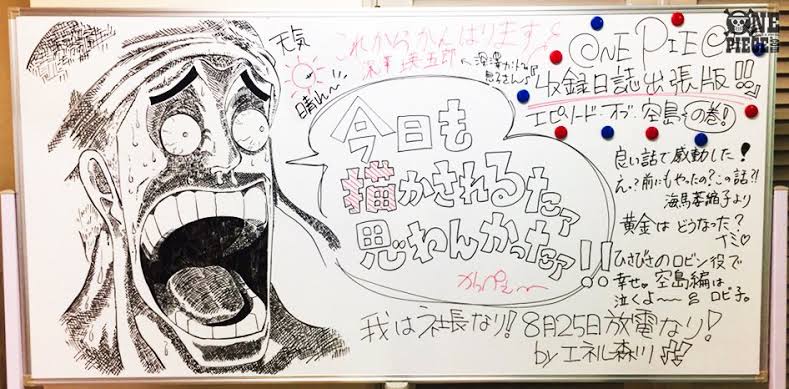 天気
晴れ〜!!
これからがんばります
ONE PIECE
収録日誌出張版!!
エピソード・オブ・空島の巻!
今日も
描かされるたァ
思わんかったァ!!
かっぺぇ〜
良い話で感動した!
え?前にもやったの?この話?!
より
黄金はどうなった?
ナミ♡
ひさびさのロビン役で
幸せ。空島編は
泣くよ〜 ロビ子。
我は社長なり! 8月25日放電なり!
by エネル森川
ONE
PIECE